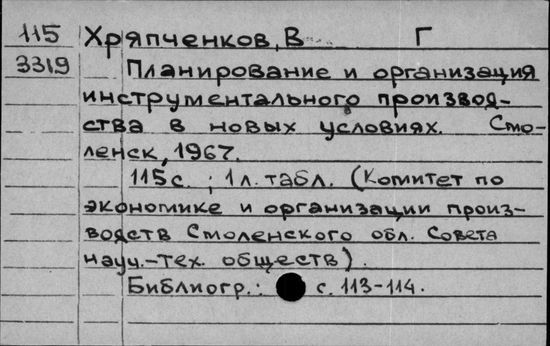 115 Хряпченков, В Г
3319 Планирование и организация
инструментального производ-
ства в новых условиях. Смо-
ленск, 1967.
115 с. ; 1 л. табл. (Комитет по
экономике и организации произ-
водств Смоленского обл. Совета
науч.-тех. обществ).
Библиогр.: с. 113-114.